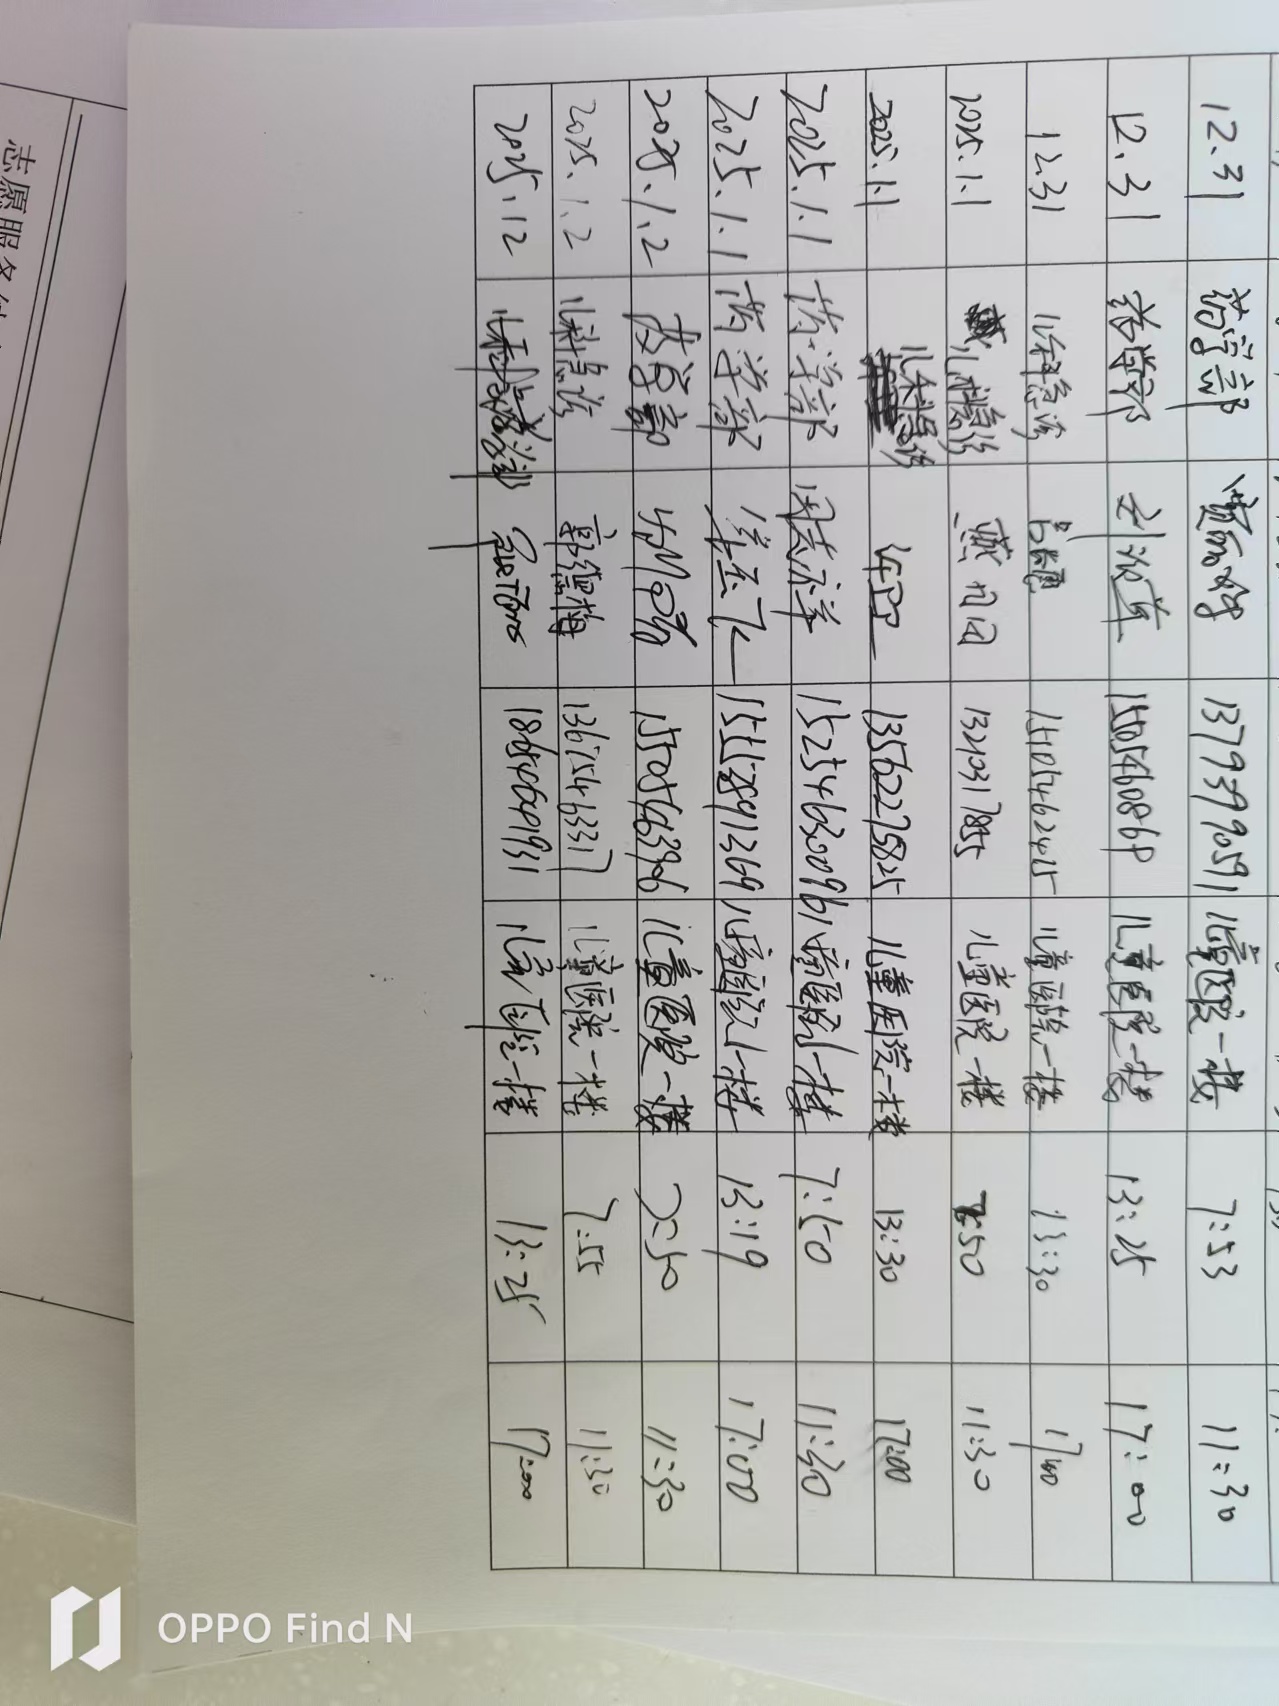 12.31 药学部 13793990591 儿童医院一楼 7:53 11:30
12.31 药学部 15054608 儿童医院一楼 13:25 17:00
12.31 儿科急诊 15105462425 儿童医院一楼 13:30 17:00
2025.1.1 儿科急诊 13210317855 儿童医院一楼 7:50 11:30
2025.1.1 儿科急诊 13562275825 儿童医院一楼 13:30 17:00
2025.1.1 药学部 15254630096 儿童医院一楼 7:50 11:30
2025.1.1 药学部 儿童医院一楼 13:19 17:00
2025.1.2 药学部 儿童医院一楼 7:50 11:30
2025.1.2 儿科急诊 郭德梅 13675463317 儿童医院一楼 7:55 11:30
2025.1.2 一楼 13:25 17:00
志愿服务
OPPO Find N